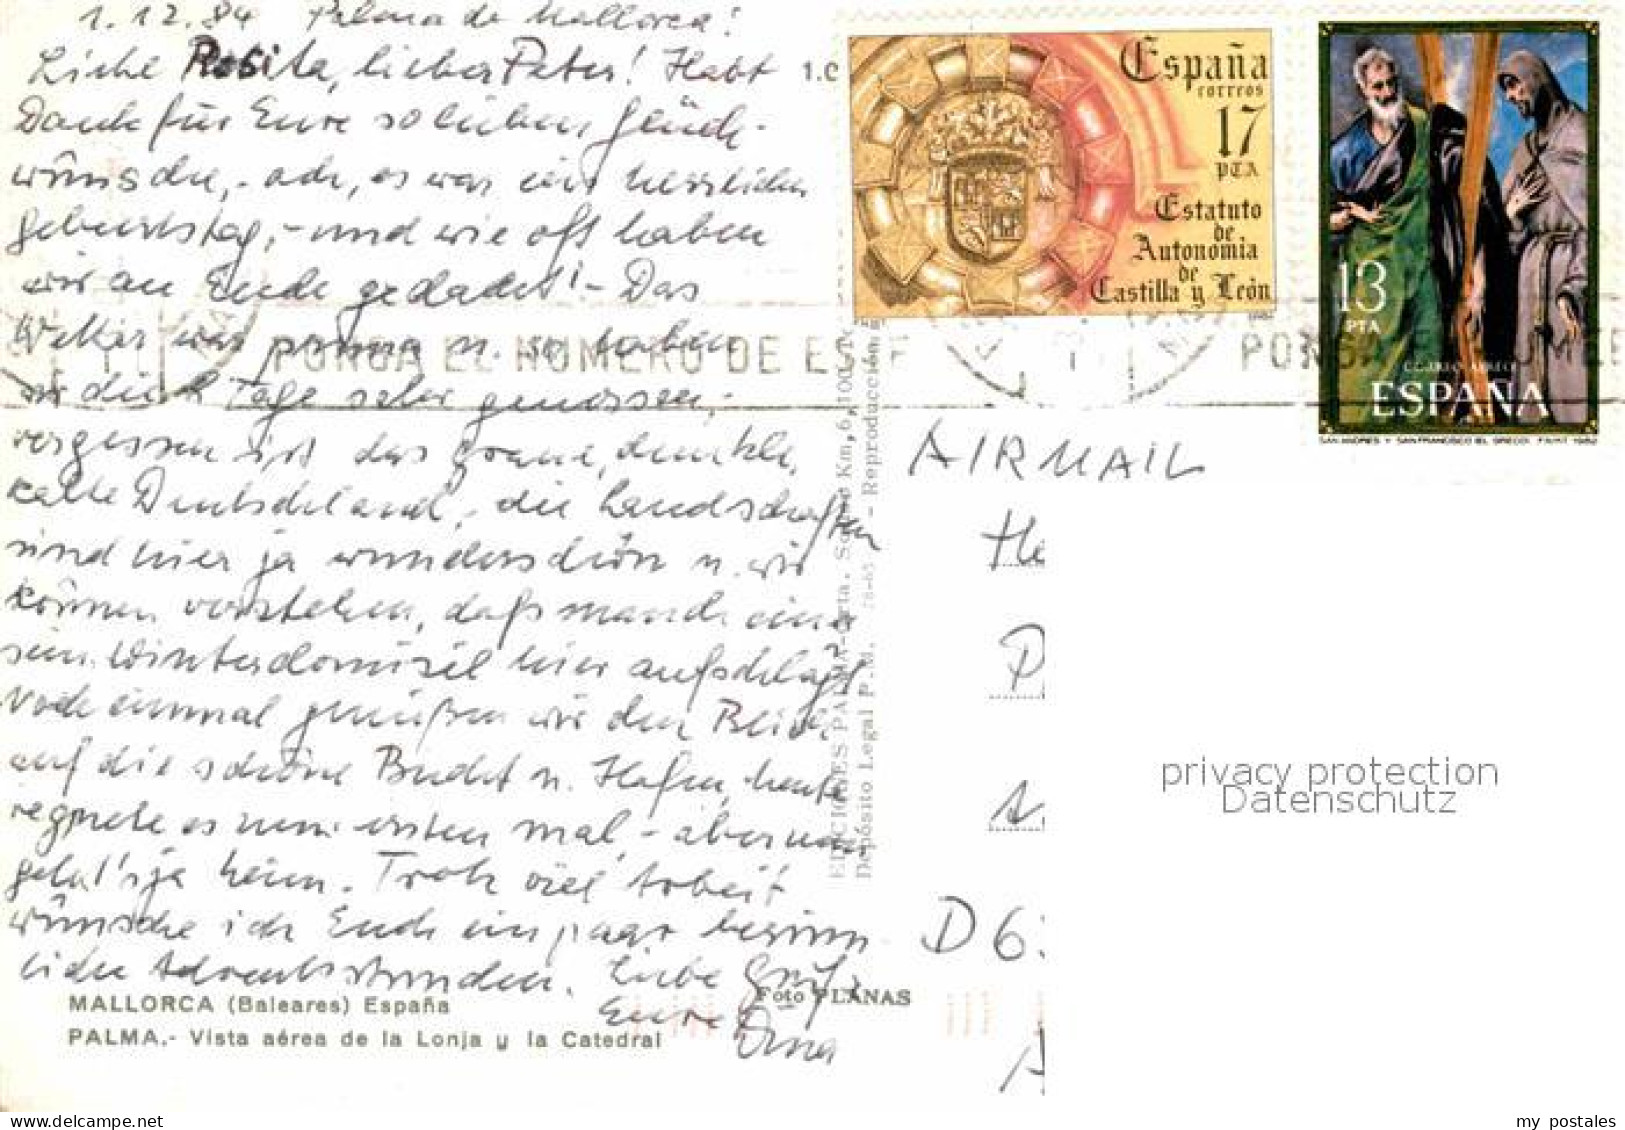 1.12.84 Palma de Mallorca!
Liebe Rosita, lieber Peter! Habt
Dank für Eure so lieben Glück-
wünsche,- ach, es war ein herrlicher
Geburtstag,- und wie oft haben
wir an Euch gedacht!- Das
Wetter war prima u. so haben
wir die Tage sehr genossen,-
vergessen ist das graue, dunkle,
kalte Deutschland,- die Landschaften
sind hier ja wunderschön u. wir
können verstehen, daß manch einer
sein Winterdomizil hier aufschlägt
Noch einmal genießen wir den Blick
auf die schöne Bucht u. Hafen, heute
regnete es zum ersten mal,- aber nun
geht's ja heim. Trotz viel Arbeit
wünsche ich Euch ein paar besinn-
liche Adventsstunden. Liebe Grüße
Eure
MALLORCA (Baleares) España
PALMA.- Vista aérea de la Lonja y la Catedral
Foto PLANAS
EDICIONES PALMA
Depósito Legal P.M. - Reproducción
España
correos
17
PTA
Estatuto
de
Autonomía
de
Castilla y León
13
PTA
CORREO AEREO
ESPAÑA
SAN ANDRES Y SAN FRANCISCO (EL GRECO) F.N.M.T. 1982
PONGA EL NUMERO DE
PONGA
AIRMAIL
He
D 6
A
privacy protection
Datenschutz
my postales